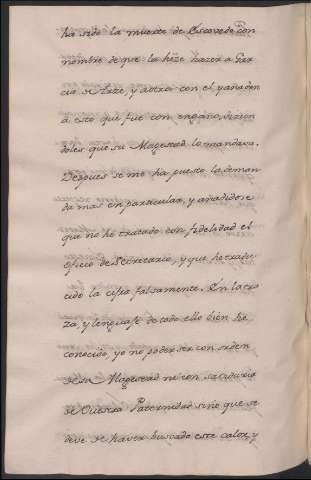 ha sido la muerte de Escovedo con
nombre de que la hize hazer a Gar
cia de Arze, y a otros con el, y añaden
a esto que fue con engaño, dizien
doles que su Magestad lo mandava.
Despues se me ha puesto la deman
da mas en particular, y añadidose
que no he tratado con fidelidad el
oficio de Secretario, y que he tradu
cido la cifra falsamente. En la tra
za, y lenguaje de todo ello bien he
conocido, yo no poder ser con orden
de su Magestad ni con sabiduria
de Vuestra Paternidad sino que se
deve de haver buscado este calor, y